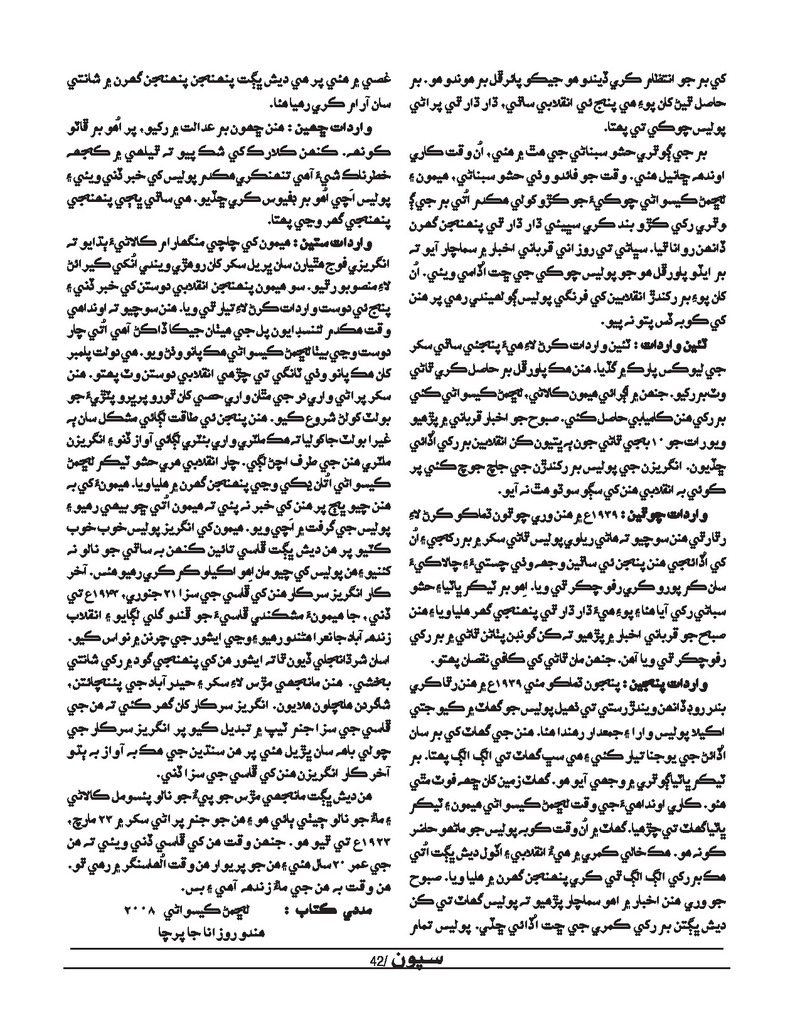 کي بم جو انتظام ڪري ڏيندو هو جيڪو پائرقل بم هوندو هو. بم
حاصل ٿيڻ کان پوءِ هي پنج ئي انقلابي ساٿي، ڌار ڌار ٿي پراڻي
پوليس چوڪي تي پهتا.
بم جي ڳوٿري حشو سبناڻي جي هٿ ۾ هئي، اُن وقت ڪاري
اونده ڇانيل هئي. وقت جو فائدو وٺي حشو سبناڻي، هيمون ۽
لڇمڻ ڪيسواڻي چوڪيءَ جو ڪڙو کولي هڪدم اُتي بم جي ڳ
وٿري رکي ڪڙو بند ڪري سڀيئي ڌار ڌار ٿي پنهنجن گهرن
ڏانهن روانا ٿيا. سڀاڻي تي روزاني قرباني اخبار ۾ سماچار آيو ته
بم ايڏو پاورفل هو جو پوليس چوڪي جي ڇت اُڏامي ويئي. اُن
کان پوءِ بم رکندڙ انقلابين کي فرنگي پوليس ڳولهيندي رهي پر هنن
کي ڪو به ڏس پتو نه پيو.
ٽئين واردات : ٽئين واردات ڪرڻ لاءِ هيءَ پنجئي ساٿي سکر
جي ليوڪس پارڪ ۾ گڏيا. هنن هڪ پاورفل بم حاصل ڪري ٿاڻي
وٽ بم رکيو. جنهن ۾ اڳرائي هيمون ڪالاڻي، لڇمڻ ڪيسواڻي ڪئي
بم رکي هنن ڪاميابي حاصل ڪئي. صبوح جو اخبار قرباني ۾ پڙهيو
ويو رات جو ۱۰ بجي ٿاڻي جون ٻه ڀتيون ڪن انقلابين بم رکي اُڏائي
ڇڏيون. انگريزن جي پوليس بم رکندڙن جي جاچ جوچ ڪئي پر
ڪوئي به انقلابي هنن کي سڳو سوٽو هٿ نه آيو.
واردات چوٿين : ۱۹۳۹ع ۾ هنن وري چوٿون ڌماڪو ڪرڻ لاءِ
رٿا رٿي هنن سوچيو ته هاڻي ريلوي پوليس ٿاڻي سکر ۾ بم رکجي ۽ اُن
کي اُڏائجي هنن پنجن ئي ساٿين وجهه وٺي چستيءَ ۽ چالاڪيءَ
سان ڪم پورو ڪري رفو چڪر ٿي ويا. اِهو بم ٽيڪم ڀاٽيا ۽ حشو
سباڻي رکي آيا هئا ۽ پوءِ هيءَ ڌار ڌار ٿي پنهنجي گهر هليا ويا ۽ هنن
صبح جو قرباني اخبار ۾ پڙهيو ته ڪن گونڊين پٺاڻن ٿاڻي ۾ بم رکي
رفو چڪر ٿي ويا آهن. جنهن مان ٿاڻي کي ڪافي نقصان پهتو.
واردات پنجين : پنجون ڌماڪو مئي ۱۹۳۹ع ۾ هنن رٿا ڪري
بندر روڊ ڏانهن ويندڙ رستي تي ٺهيل پوليس جو گهاٽ ۾ ڪيو جتي
اڪيلا پوليس وارا ۽ جمعدار رهندا هئا. هنن جي گهاٽ کي بم سان
اُڏائڻ جي يوجنا تيار ڪئي ۽ هي سڀ گهاٽ تي الڳ الڳ پهتا. بم
ٽيڪم ڀاٽيا ڳوٿري ۾ وجهي آيو هو. گهاٽ زمين کان ڇهه فوٽ مٿي
هئو. ڪاري اونداهيءَ جي وقت لڇمڻ ڪيسواڻي هيمون ۽ ٽيڪم
ڀاٽيا گهاٽ تي چڙهيا. گهاٽ ۾ اُن وقت ڪو به پوليس جو ماڻهو حاضر
ڪونه هو. هڪ خالي ڪمري ۾ هيءُ انقلابي ۽ اڏول ديش ڀڳت اُتي
هڪ بم رکي الڳ الڳ ٿي ڪري پنهنجن گهرن ۾ هليا ويا. صبوح
جو وري هنن اخبار ۾ اهو سماچار پڙهيو ته پوليس گهاٽ تي ڪن
ديش ڀڳتن بم رکي ڪمري جي ڇت اُڏائي ڇڏي. پوليس تمام
غصي ۾ هئي پر هي ديش ڀڳت پنهنجن پنهنجن گهرن ۾ شانتي
سان آرام ڪري رهيا هئا.
واردات ڇهين : هنن ڇهون بم عدالت ۾ رکيو، پر اُهو بم ڦاٽو
ڪونهه. ڪنهن ڪلارڪ کي شڪ پيو ته ٿيلهي ۾ ڪجهه
خطرناڪ شيءَ آهي تنهنڪري هڪدم پوليس کي خبر ڏني ويئي ۽
پوليس اَچي اُهو بم بفيوس ڪري ڇڏيو. هي ساٿي ڀڄي پنهنجي
پنهنجي گهر وڃي پهتا.
واردات ستين : هيمون کي چاچي منگهارام ڪالاڻيءَ ٻڌايو ته
انگريزي فوج هٿيارن سان ڀريل سکر کان روهڙي ويندي اُنکي ڪيرائڻ
لاءِ منصوبو رٿيو. سو هيمون پنهنجن انقلابي دوستن کي خبر ڏني ۽
پنج ئي دوست واردات ڪرڻ لاءِ تيار ٿي ويا. هنن سوچيو ته اونداهي
وقت هڪدم ٽنسڊ ايون پل جي هيٺان جيڪا ڏاڪڻ آهي اُتي چار
دوست وڃي بيٺا لڇمڻ ڪيسواڻي هڪ پانو وٺڻ ويو. هي دولت پلمبر
کان هڪ پانو وٺي ٽانگي تي چڙهي انقلابي دوستن وٽ پهتو. هنن
سکر پراڻي واري در جي مٿان واري حصي کان ٿورو پرڀرو پٽڙيءَ جو
بولٽ کولڻ شروع ڪيو. هنن پنجن ئي طاقت لڳائي مشڪل سان ٻه
غيرا بولٽ جا کوليا ته هڪ ملٽري واري بئٽري لڳائي آواز ڏنو ۽ انگريزن
ملٽري هنن جي طرف اچڻ لڳي. چار انقلابي هري حشو ٽيڪم لڇمڻ
ڪيسواڻي اُتان ڀڄي وڃي پنهنجن گهرن ۾ هليا ويا. هيمونءَ کي به
هنن چيو ڀڄ پر هنن کي خبر نه پئي ته هيمون اُتي ڇو بيهي رهيو ۽
پوليس جي گرفت ۾ اَچي ويو. هيمون کي انگريز پوليس خوب خوب
ڪٽيو پر هن ديش ڀڳت ڦاسي تائين ڪنهن به ساٿي جو نالو نه
کنئيو ۽ هن پوليس کي چيو مان اِهو اڪيلو ڪم ڪري رهيو هئس. آخر
ڪار انگريز سرڪار هنن کي ڦاسي جي سزا ۲۱ جنوري، ۱۹۴۳ع تي
ڏني، جا هيمونءَ مشڪندي ڦاسيءَ جو ڦندو گلي لڳايو ۽ انقلاب
زنده آباد جا نعرا هڻندو رهيو ۽ وڃي ايشور جي چرنن ۾ نواس ڪيو.
اسان شرڌانجلي ڏيون ٿا ته ايشور هن کي پنهنجي گود ۾ رکي شانتي
بخشي. هنن مانجهي مڙس لاءِ سکر ۽ حيدرآباد جي پئنچائتن،
شاگردن هلچلون هلايون. انگريز سرڪار کان گهر ڪئي ته هن جي
ڦاسي جي سزا جنم ٽيپ ۾ تبديل ڪيو پر انگريز سرڪار جي
چولي باهه سان ڀڙيل هئي پر هن سنڌين جي هڪ به آواز به ٻڌو
آخر ڪار انگريزن هنن کي ڦاسي جي سزا ڏني.
هن ديش ڀڳت مانجهي مڙس جو پيءُ جو نالو پئسومل ڪالاڻي
۽ ماءُ جو نالو جيٺي ٻائي هو ۽ هن جو جنم پراڻي سکر ۾ ۲۳ مارچ،
۱۹۲۳ع تي ٿيو هو. جنهن وقت هن کي ڦاسي ڏني ويئي ته هن
جي عمر ۲۰ سال هئي ۽ هن جو پريوار هن وقت اُلهاسنگر ۾ رهي ٿو.
هن وقت به هن جي ماءُ زنده آهي ۽ بس.
مددي ڪتاب : لڇمڻ ڪيسواڻي ۲۰۰۸
هندو روزانا جا پرچا
سپون /42